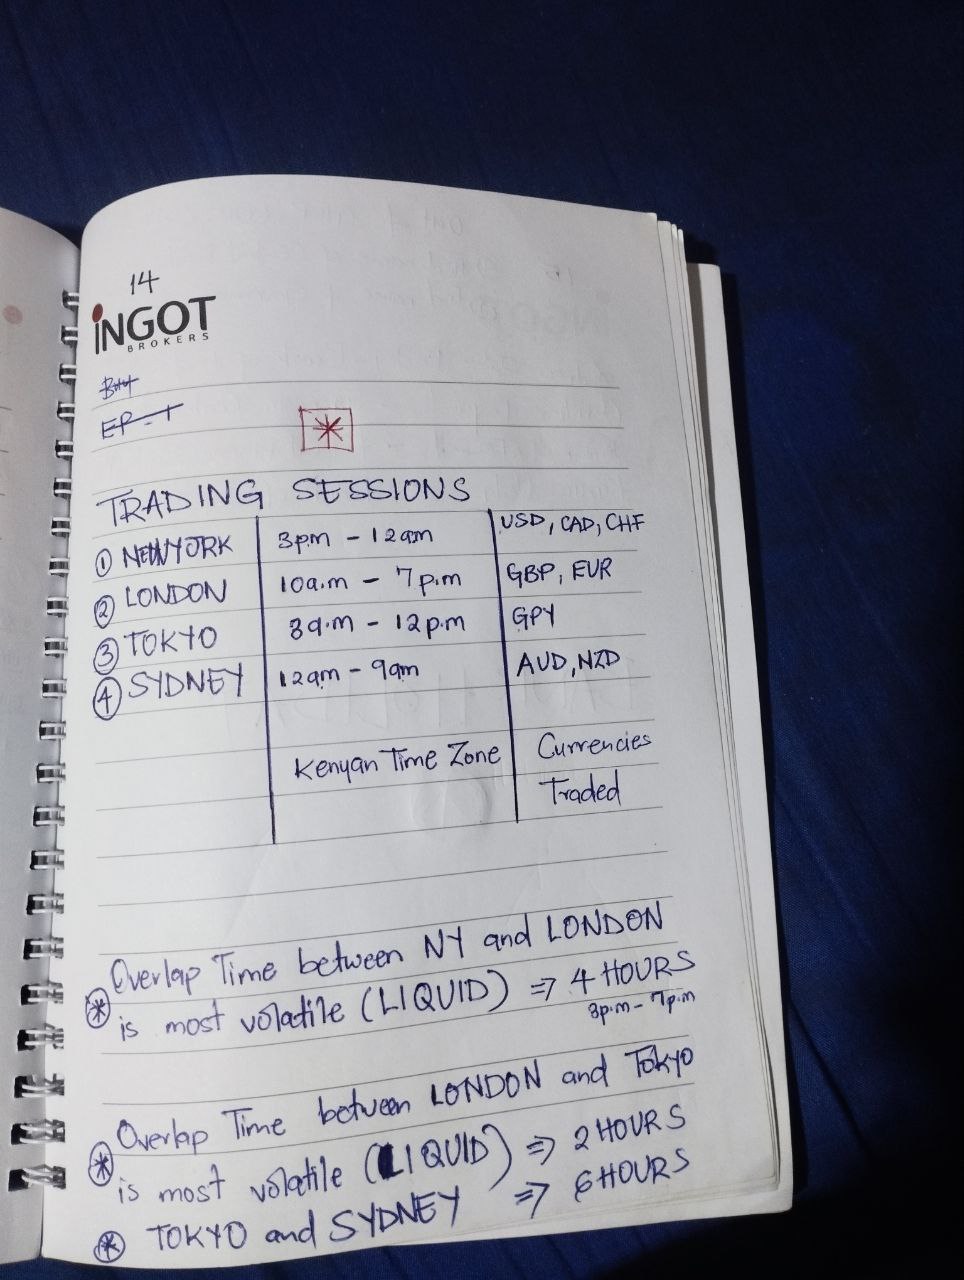 14
iNGOT
BROKERS
TRADING SESSIONS
① NEWYORK 3pm - 12am USD, CAD, CHF
② LONDON 10a.m - 7p.m GBP, EUR
③ TOKYO 3a.m - 12p.m GPY
④ SYDNEY 12am - 9am AUD, NZD
Kenyan Time Zone Currencies
Traded
Overlap Time between NY and LONDON
is most volatile (LIQUID) ⇒ 4 HOURS
3p.m - 7p.m
Overlap Time between LONDON and Tokyo
is most volatile (LIQUID) ⇒ 2 HOURS
TOKYO and SYDNEY ⇒ 6 HOURS